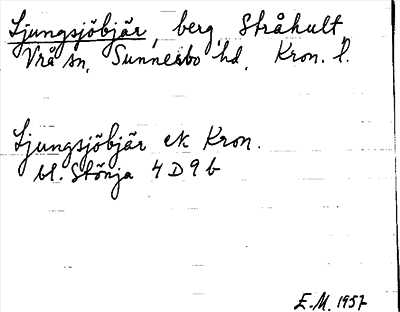 Ljungsjöbjär, berg, Stråhult,
Vrå sn, Sunnerbo hd, Kron. l.
Ljungsjöbjär ek Kron.
bl. Stönja 4 D 9 b
E.M. 1957